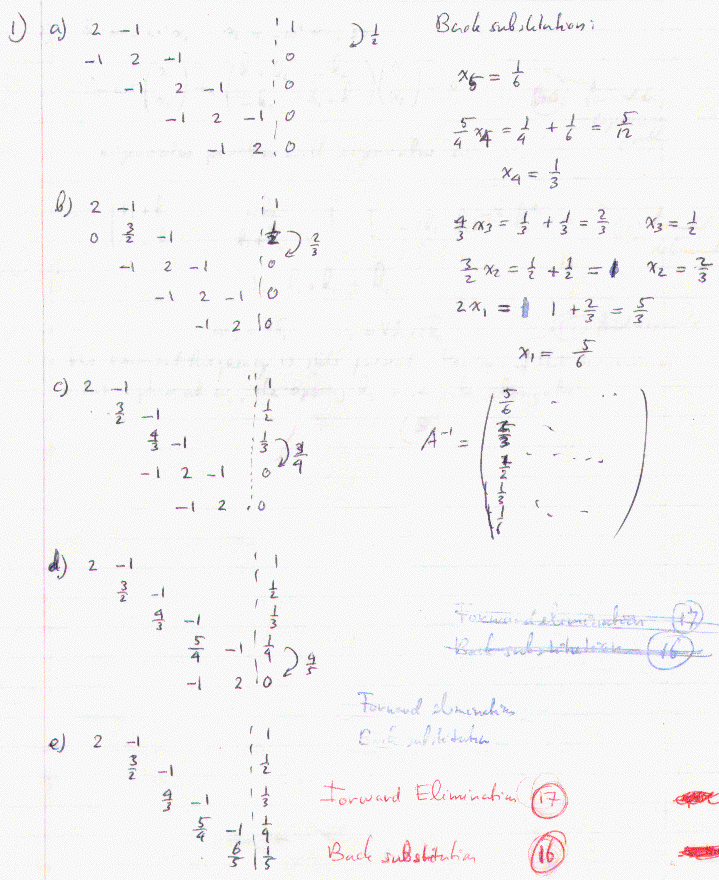 1) a) 2 -1 | 1
-1 2 -1 | 0 1/2
-1 2 -1 | 0
-1 2 -1 | 0
-1 2 | 0
b) 2 -1 | 1
0 3/2 -1 | 1/2 2/3
-1 2 -1 | 0
-1 2 -1 | 0
-1 2 | 0
c) 2 -1 | 1
3/2 -1 | 1/2
4/3 -1 | 1/3 3/4
-1 2 -1 | 0
-1 2 | 0
d) 2 -1 | 1
3/2 -1 | 1/2
4/3 -1 | 1/3
5/4 -1 | 1/4 4/5
-1 2 | 0
e) 2 -1 | 1
3/2 -1 | 1/2
4/3 -1 | 1/3
5/4 -1 | 1/4
6/5 | 1/5
Back substitution:
x5 = 1/6
5/4 x4 = 1/4 + 1/6 = 5/12
x4 = 1/3
4/3 x3 = 1/3 + 1/3 = 2/3 x3 = 1/2
3/2 x2 = 1/2 + 1/2 = 1 x2 = 2/3
2x1 = 1 + 2/3 = 5/3
x1 = 5/6
A^-1 = ( 5/6
2/3
1/2
1/3
1/6 )
Forward elimination 17
Back substitution 16
Forward elimination
Back substitution
Forward Elimination 17
Back substitution 16